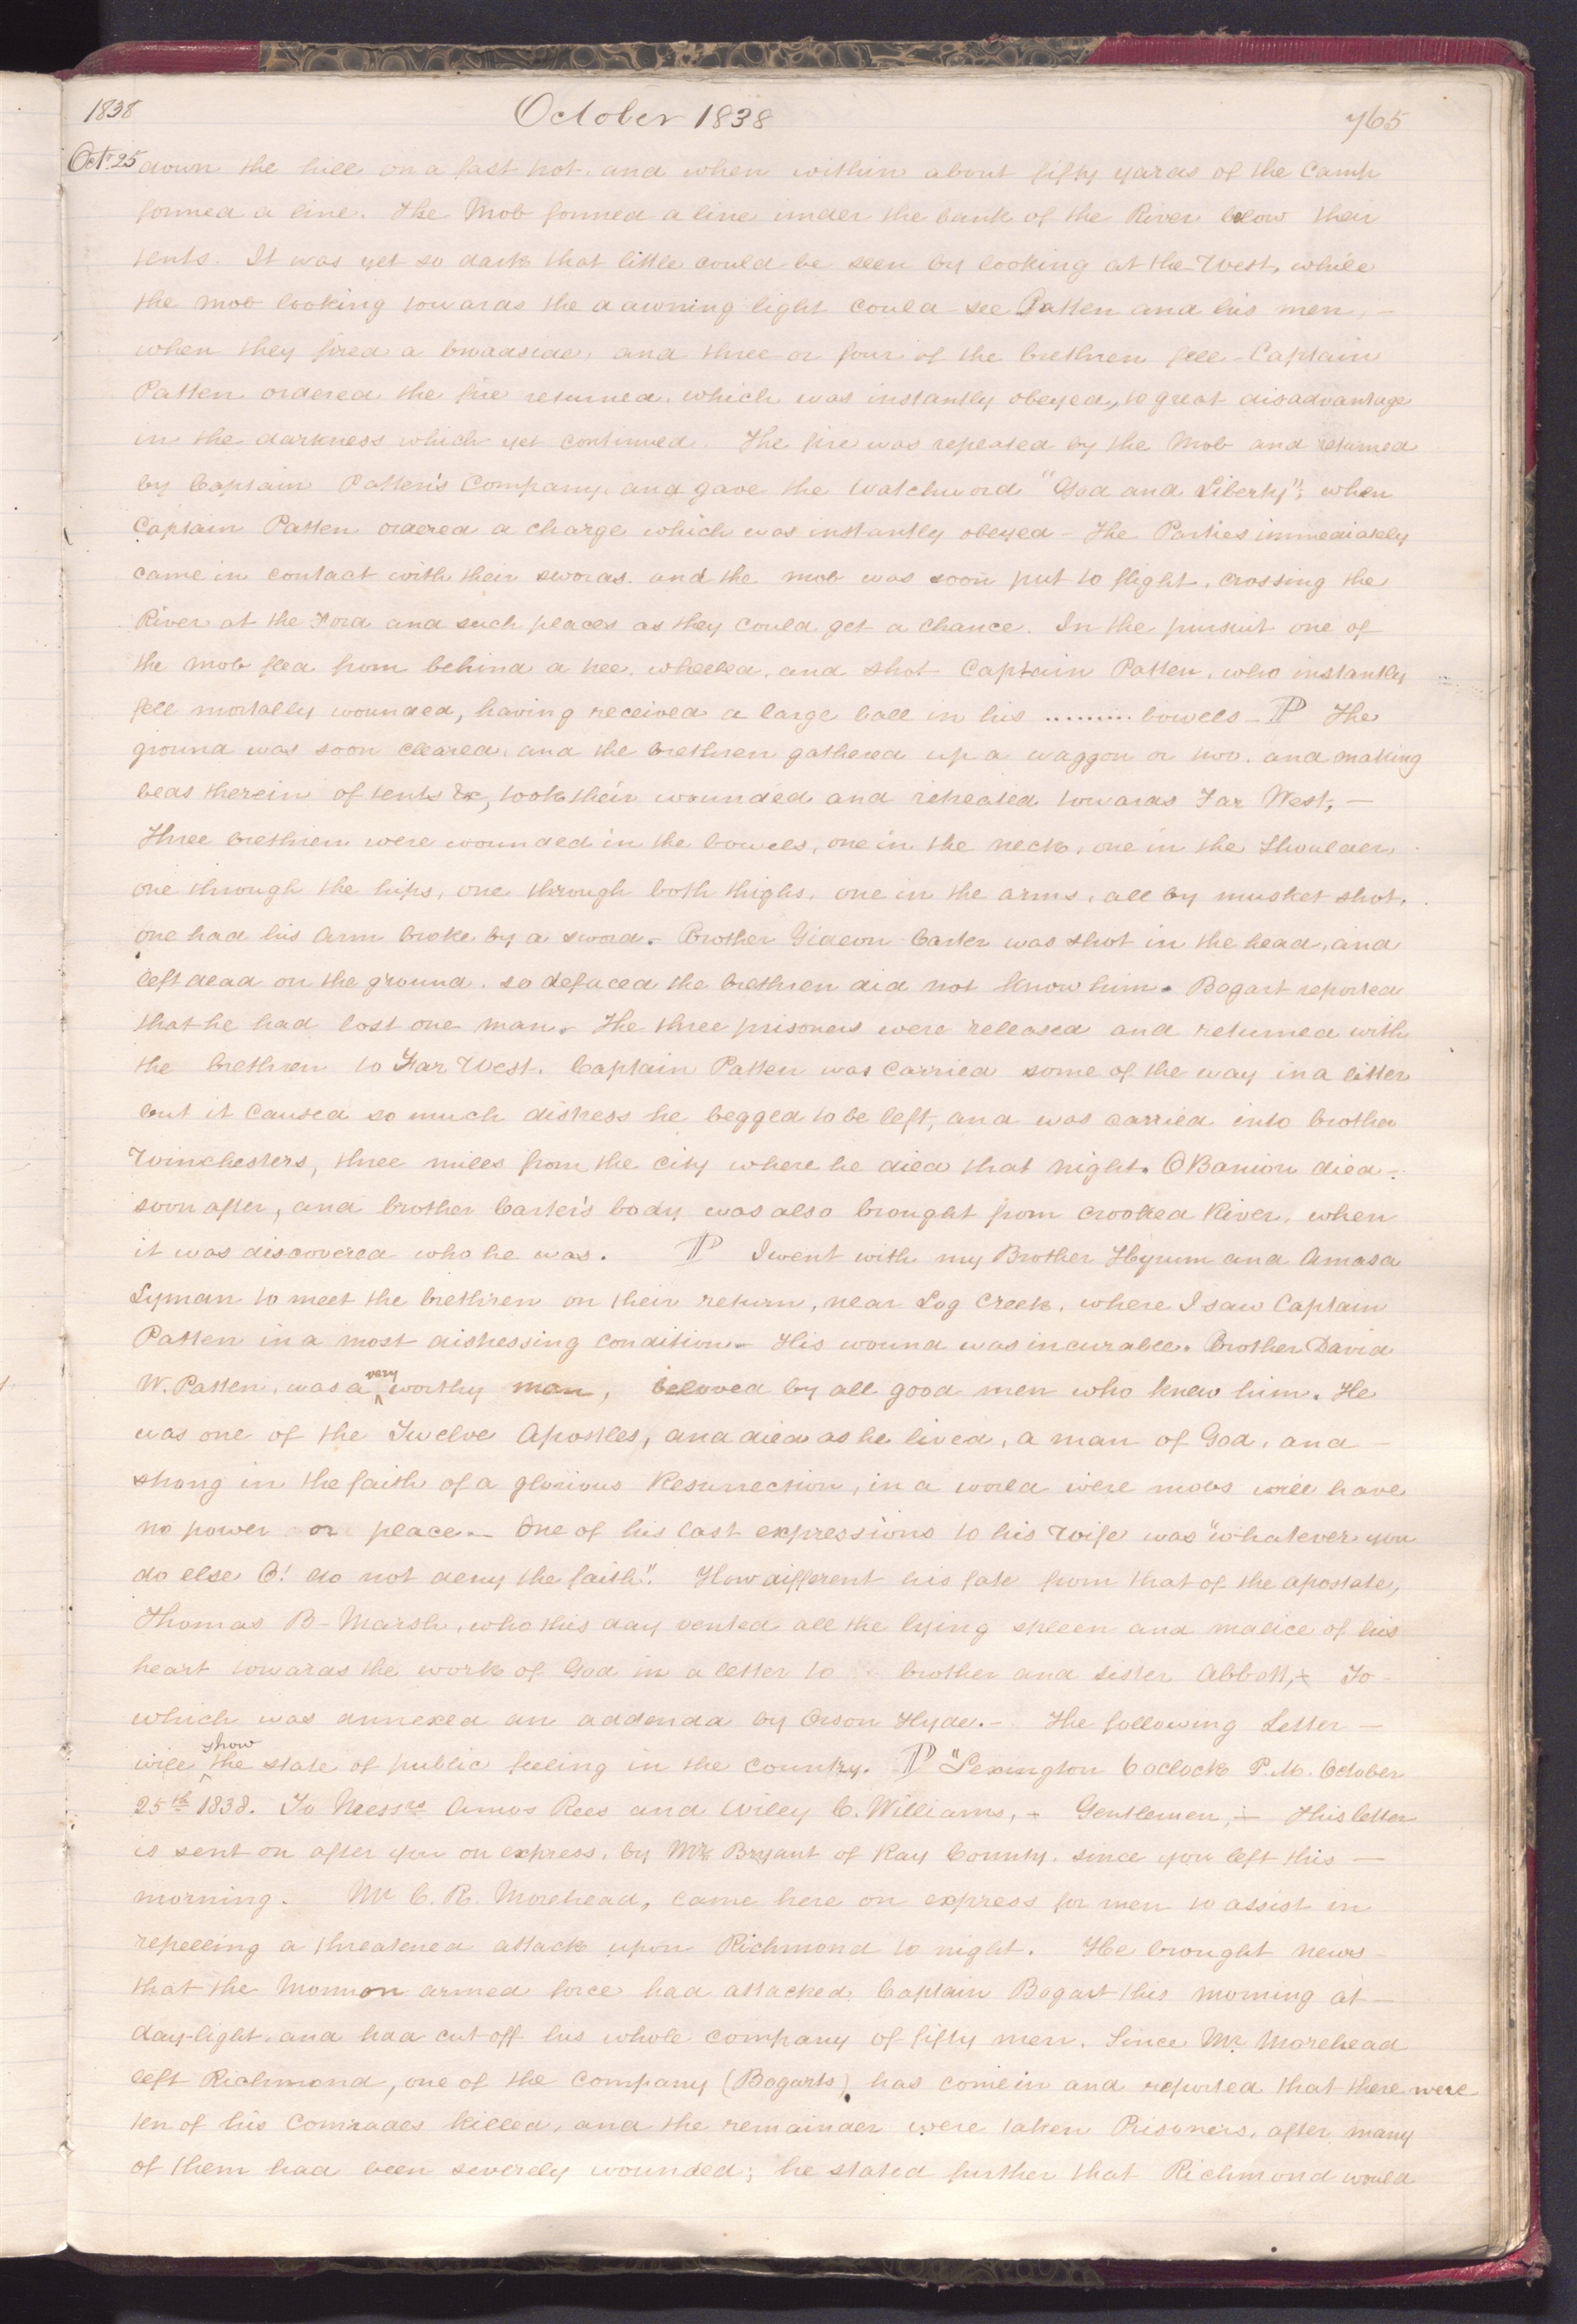 1838 October 1838 765
Oct. 25 down the hill on a fast trot, and when within about fifty yards of the Camp
formed a line. The Mob formed a line under the bank of the River below their
tents. It was yet so dark that little could be seen by looking at the West, while
the mob looking towards the dawning light could see Patten and his men, —
when they fired a broadside, and three or four of the brethren fell - Captain
Patten ordered the fire returned, which was instantly obeyed, to great disadvantage
in the darkness which yet continued. The fire was repeated by the Mob and returned
by Captain Patten's Company, and gave the watchword "God and Liberty"; when
Captain Patten ordered a charge which was instantly obeyed - The Parties immediately
came in contact with their swords. and the mob was soon put to flight, crossing the
River at the Ford and such places as they could get a chance. In the pursuit one of
the mob fled from behind a tree, wheeled, and shot Captain Patten, who instantly
fell mortally wounded, having received a large ball in his .......... bowels - P The
ground was soon cleared, and the brethren gathered up a waggon or two, and making
beds therein of tents &c, took their wounded and retreated towards Far West, —
Three brethren were wounded in the bowels, one in the neck, one in the shoulder,
one through the hips, one through both thighs, one in the arms, all by musket shot.
one had his arm broke by a sword. Brother Gideon Carter was shot in the head, and
left dead on the ground. so defaced the brethren did not know him. Bogart reported
that he had lost one man. The three prisoners were released and returned with
the brethren to Far West. Captain Patten was carried some of the way in a litter
but it caused so much distress he begged to be left, and was carried into brother
Winchesters, three miles from the city where he died that night. O Banion died -
soon after, and brother Carter's body was also brought from crooked River, when
it was discovered who he was. P I went with my Brother Hyrum and Amasa
Lyman to meet the brethren on their return, near Log Creek, where I saw Captain
Patten in a most distressing condition - His wound was incurable. Brother David
W. Patten, was a very worthy man, beloved by all good men who knew him. He
was one of the Twelve Apostles, and died as he lived, a man of God, and —
strong in the faith of a glorious Resurrection, in a world were mobs will have
no power or place. - One of his last expressions to his wife was "whatever you
do else O! do not deny the faith". How different his fate from that of the apostate,
Thomas B - Marsh, who this day vented all the lying spleen and malice of his
heart towards the work of God in a letter to brother and sister Abbott, To -
which was annexed an addenda by Orson Hyde. - The following Letter —
will show the state of public feeling in the Country. P "Lexington 6 oclock P.M. October
25th 1838. To Messrs Amos Rees and Wiley C. Williams, - Gentlemen, - This letter
is sent on after you on express, by Mr Bryant of Ray County. since you left this —
morning. Mr C. R. Morehead, came here on express for men to assist in
repelling a threatened attack upon Richmond to night. He brought news -
that the Mormon armed force had attacked Captain Bogart this morning at —
day-light, and had cut off his whole company of fifty men. Since Mr Morehead
left Richmond, one of the Company (Bogarts) has come in and reported that there were
ten of his Comrades killed, and the remainder were taken Prisoners, after many
of them had been severely wounded; he stated further that Richmond would